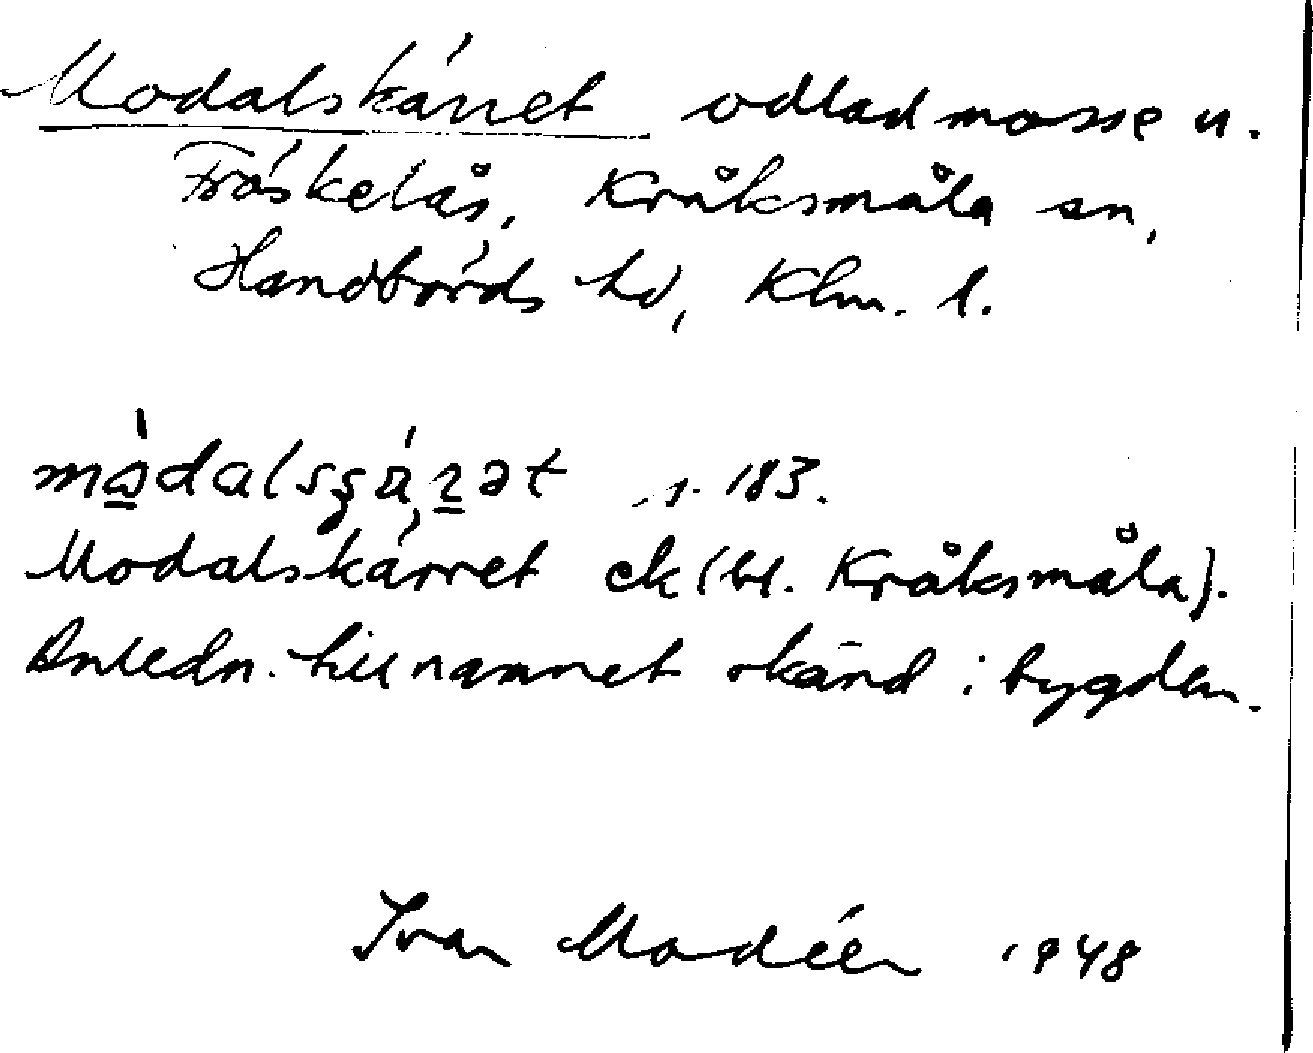 Modalskärret odlad mosse u.
Fröskelås, Kråksmåla sn,
Handbörds hd, Klm. l.
s. 183.
Modalskärret ek (bl. Kråksmåla).
Anledn. till namnet okänd i bygden.
Ivar Modéer 1948